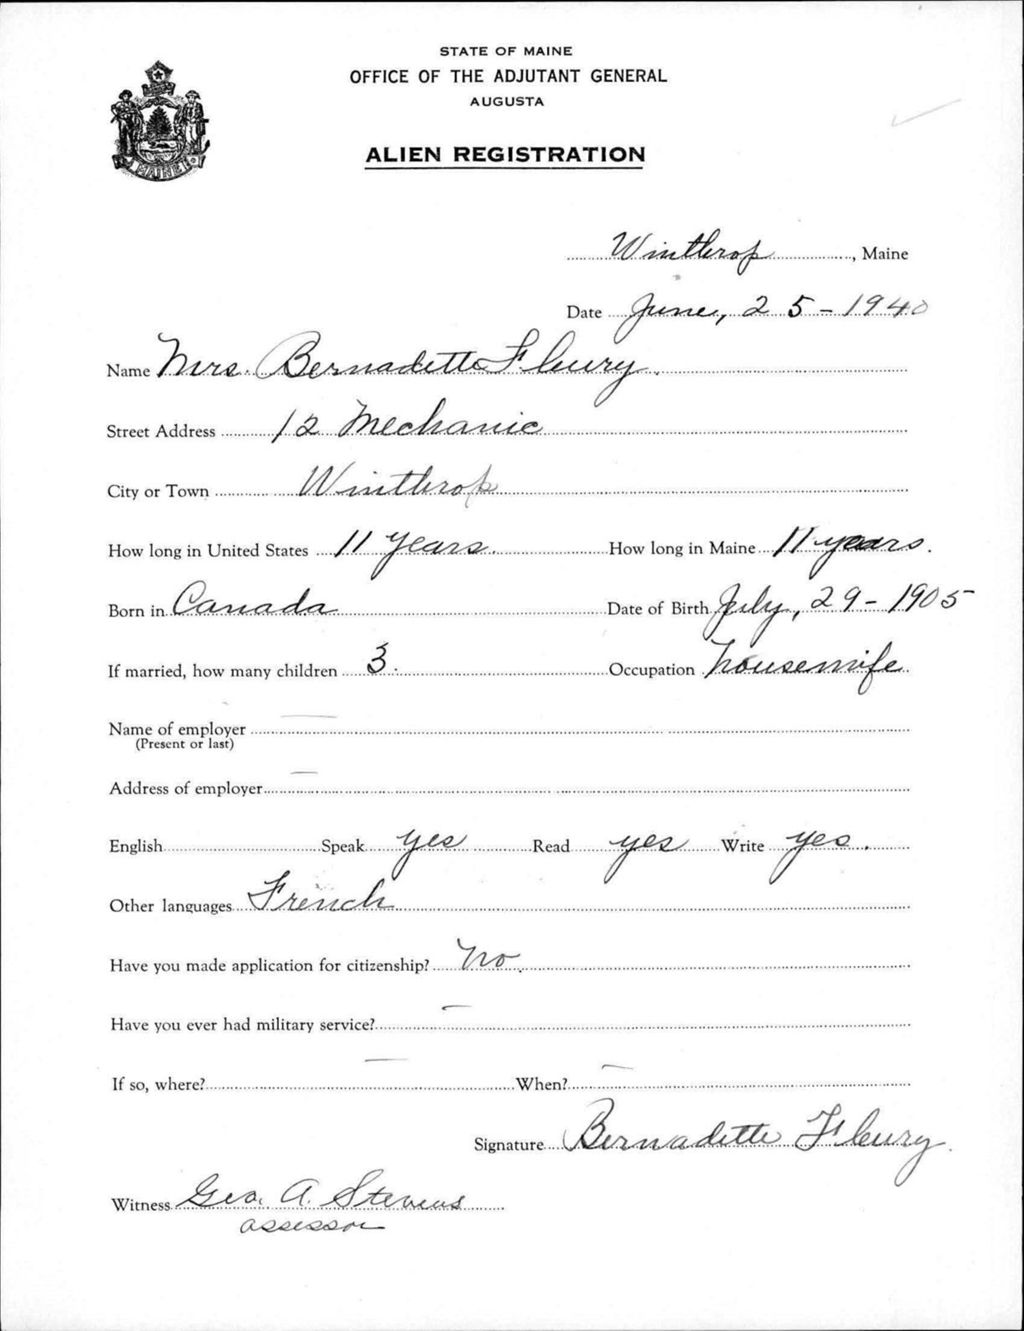 STATE OF MAINE
OFFICE OF THE ADJUTANT GENERAL
AUGUSTA
ALIEN REGISTRATION
MAINE
Winthrop, Maine
Date June, 25-1940
Name Mrs. Bernadette Fleury.
Street Address 12 Mechanic
City or Town Winthrop
How long in United States 11 years. How long in Maine 11 years.
Born in Canada Date of Birth July, 29-1905
If married, how many children 3. Occupation housewife.
Name of employer —
(Present or last)
Address of employer —
English Speak yes Read yes Write yes.
Other languages French
Have you made application for citizenship? No.
Have you ever had military service? —
If so, where? — When? —
Signature Bernadette Fleury.
Witness Geo. A. Stevens
assessor